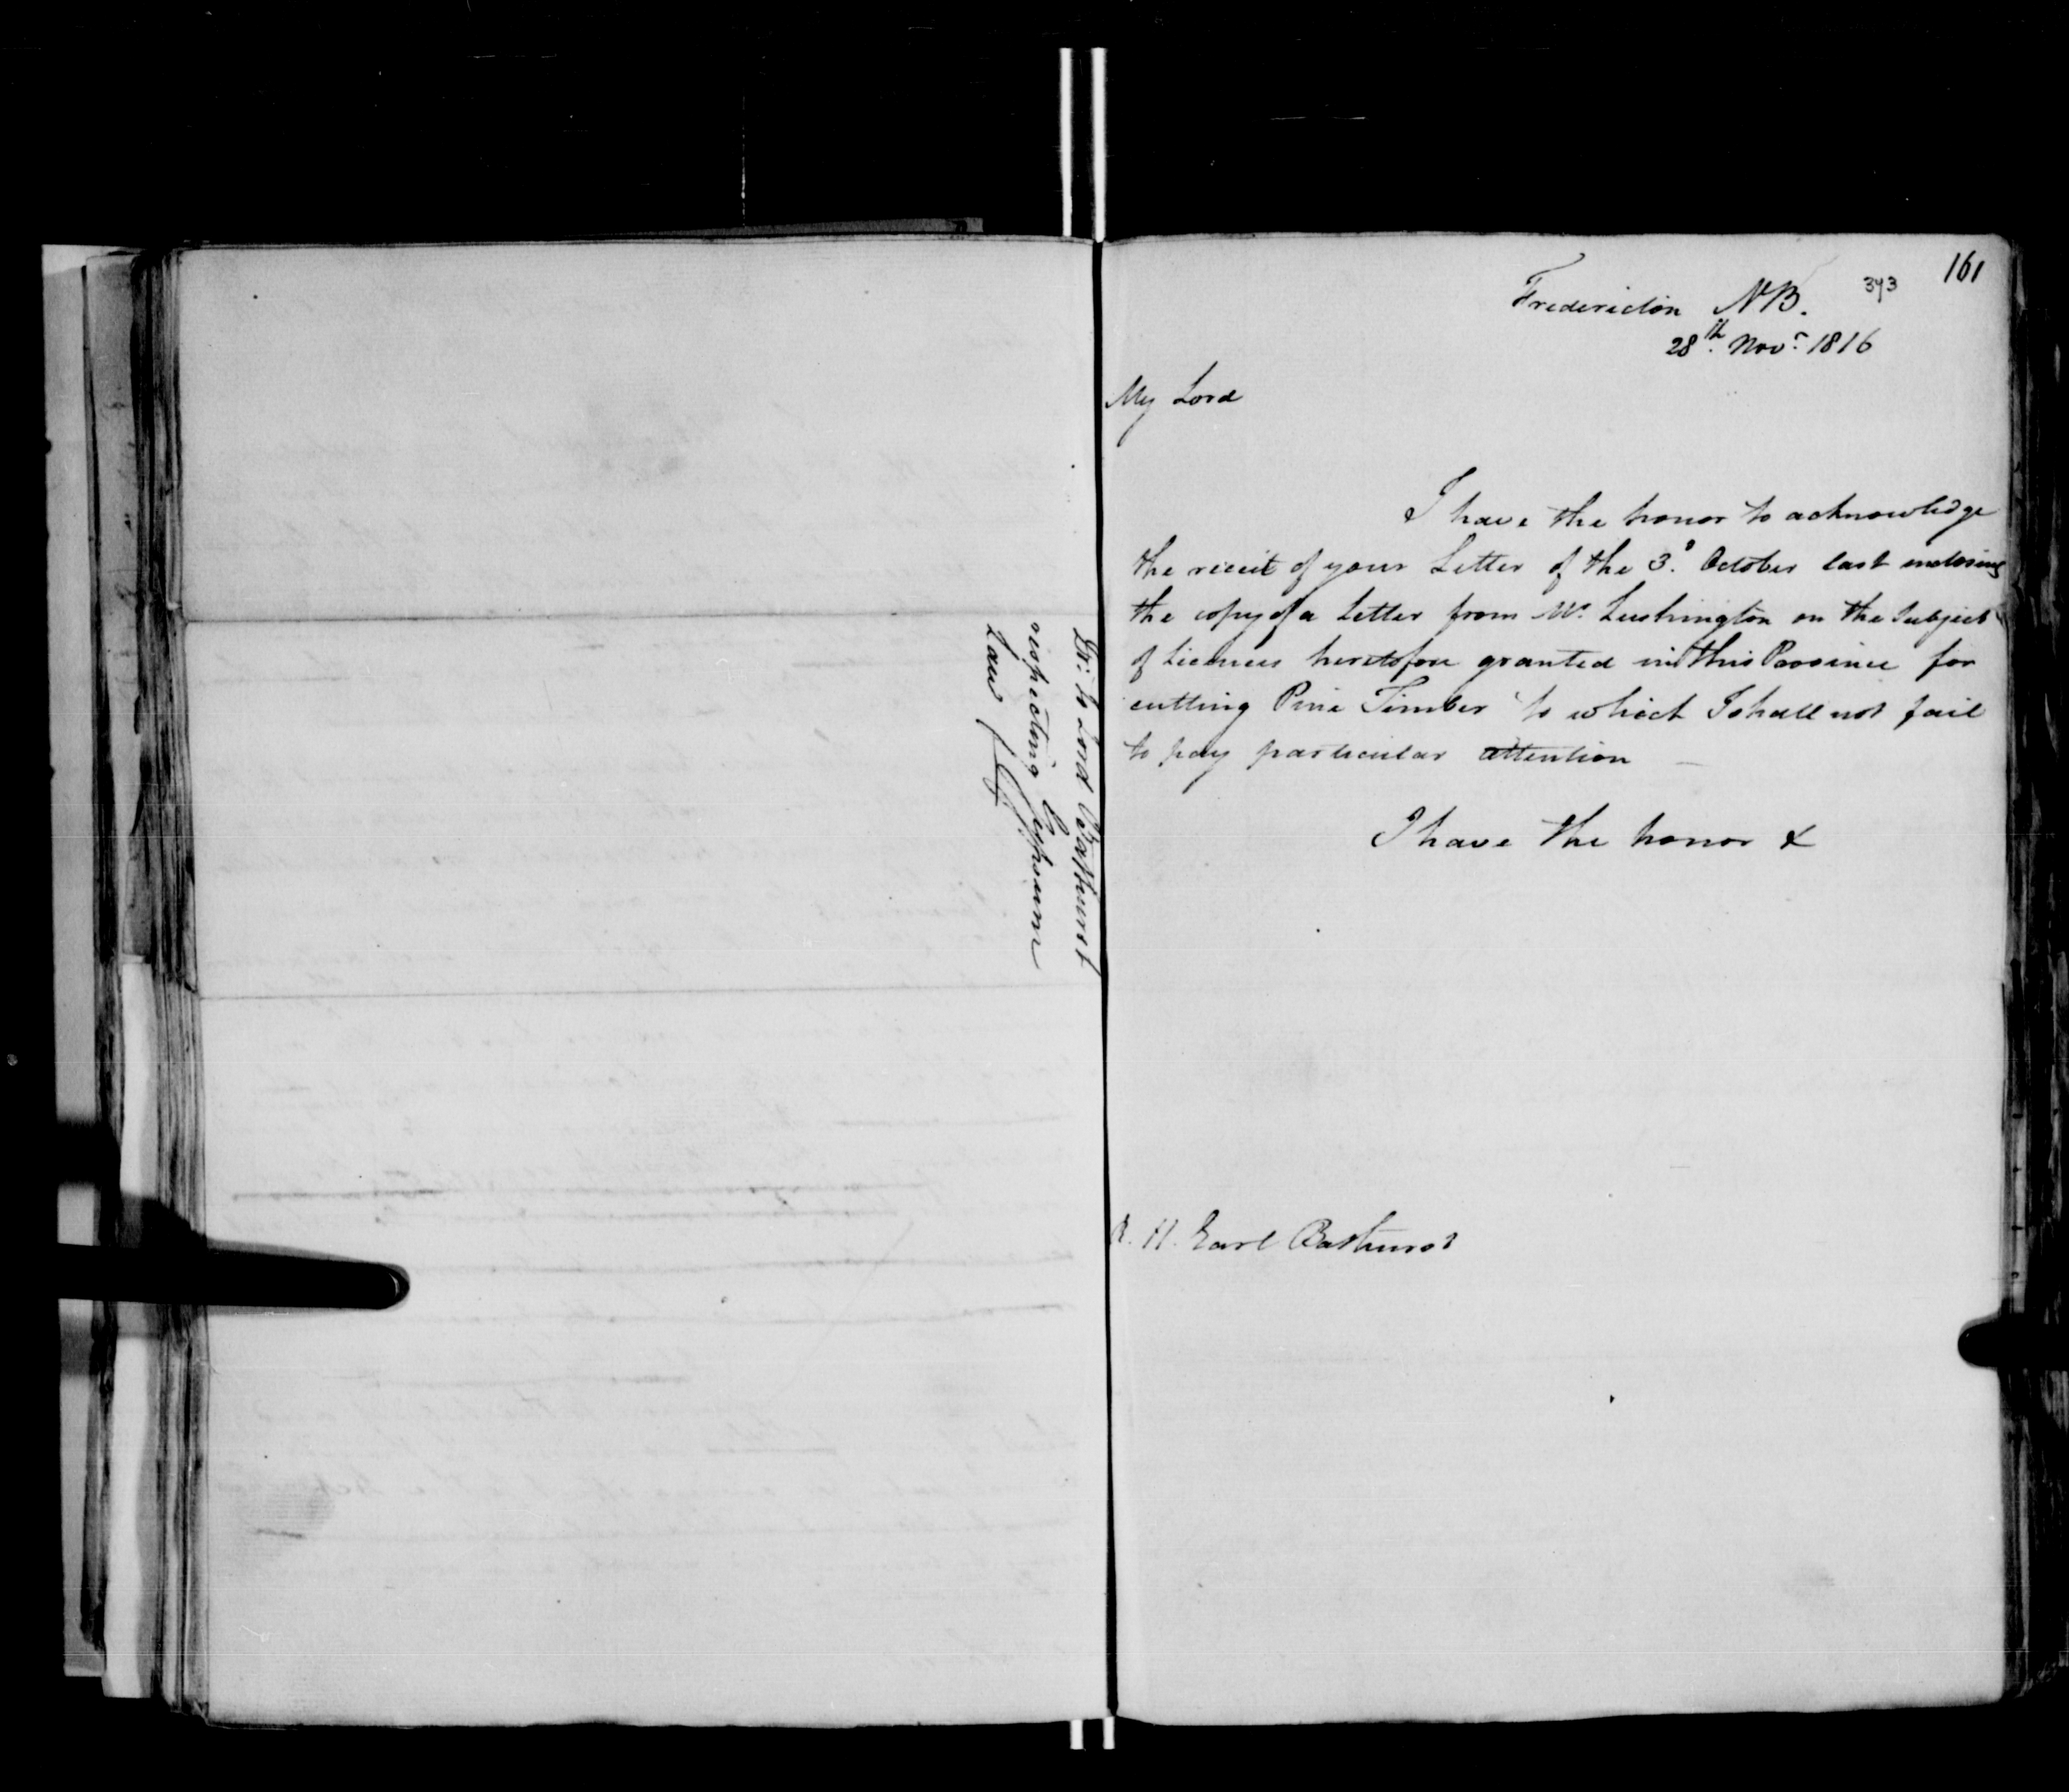 Dr: to Lord Bathurst
respecting Gypsum
Law
161
393
Fredericton NB.
28th. Novr. 1816
My Lord
I have the honor to acknowledge
the receit of your Letter of the 3d. October last enclosing
the copy of a Letter from Mr. Lushington on the Subject
of Licences heretofore granted in this Province for
cutting Pine Timber to which I shall not fail
to pay particular attention —
I have the honor &
R. H. Earl Bathurst